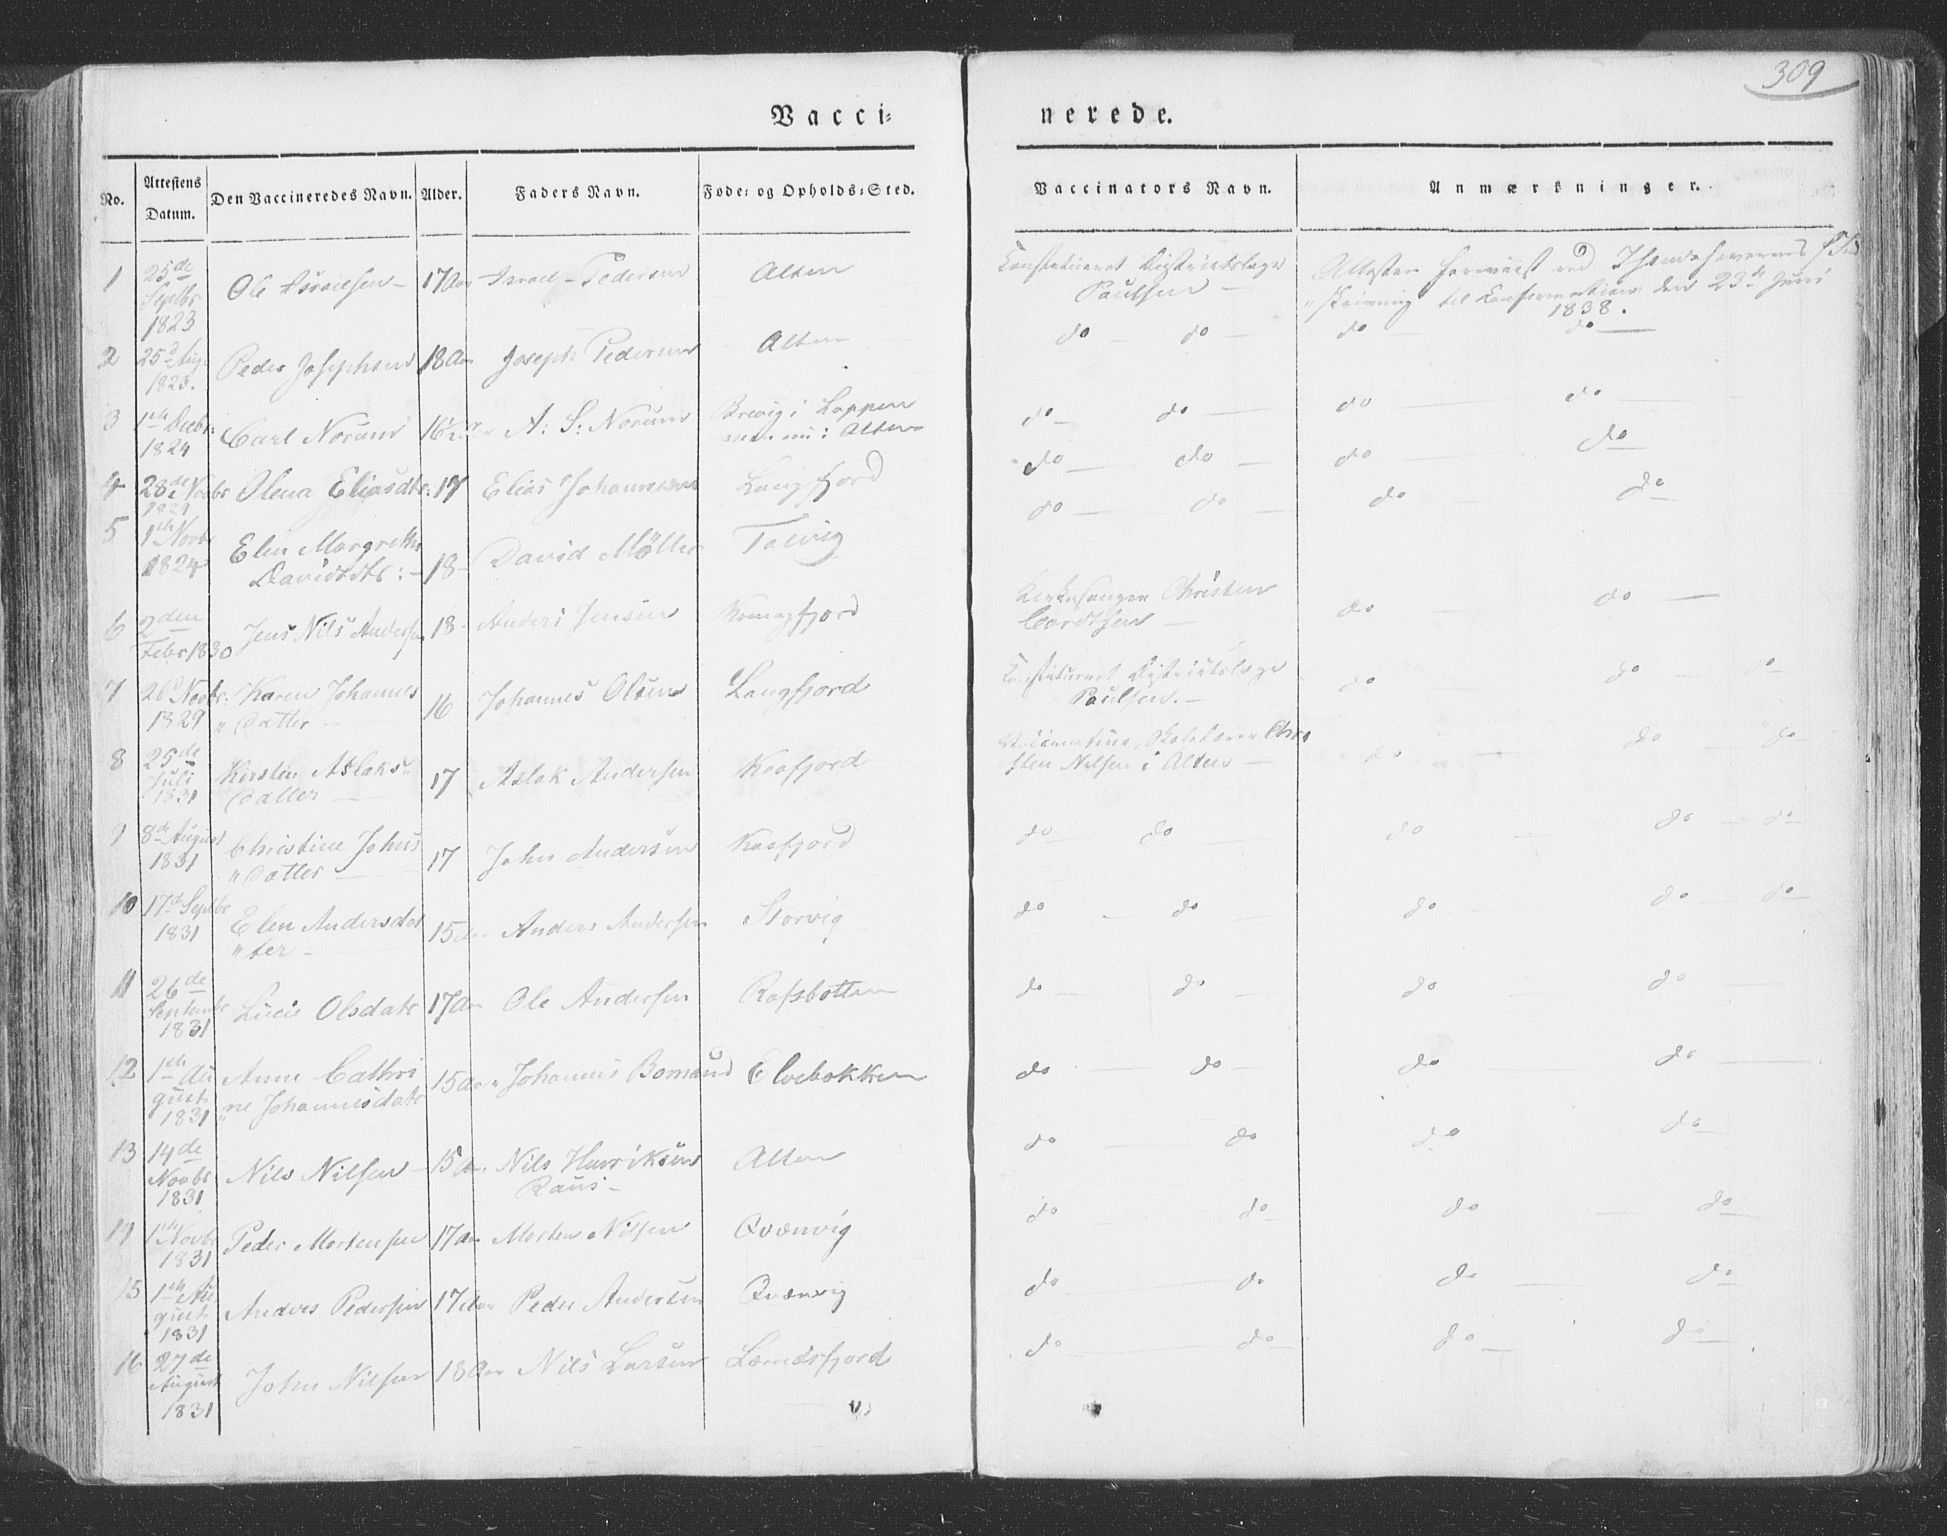 309
Vacci= nerede.
No. Attestens Datum. Den Vaccineredes Navn. Alder. Faders Navn. Føde= og Opholds=Sted. Vaccinators Navn. Anmærkninger.
1 25de Septbr 1823 Ole Israelsen 17 Aar Israel Pedersen Alten Constitueret Districtslæge Paulsen Attesten foreviist ved Ihændehaverens Ind„skrivning til Confirmation den 23de Juni 1838.
2 25d Aug. 1823. Peder Josephsen 18 Aar Joseph Pedersen Alten do do do do
3 1te Decbr. 1824 Carl Norum 16 A: S: Norum i Loppen nu i Alten do do do do
4 28de Novbr Olena Eliasdtr: 17 Elias Johannesen Langfjord do do do do
5 1te Novbr 1824 Elen Margrethe Davidsdtr: 18 David Möller Talvig do do do do
6 2den Febr 1830 Jens Nils Andersen 18 Anders Jensen Komagfjord Kirkesanger Christen do do
7 26d Novbr. 1829 Karen Johannes„datter 16 Johannes Olsen Langfjord Constitueret Districtslæge Paulsen. do do do
8 25de Juli 1831 Kirsten Aslaks„datter 17 Aslak Andersen Kaafjord Skolelærer Chri„sten Nilsen i Alten do do do
9 8de August 1831 Christine Johns„datter 17 John Andersen Kaafjord do do do do do
10 17d Septbr 1831 Elen Andersdat„ter 15 Aar Anders Andersen Storvig do do do do do
11 26de Septembr 1831 Lucie Olsdatr 17 Aar Ole Andersen Rafsbotten do do do do
12 1te August 1831 Anne Cathrine Johannesdatr 15 Aar Johannes Elvebakken do do do do
13 14de Novbr 1831 Nils Nilsen 15 Aar Nils Henriksen Alten do do do do
14 1te Novbr 1831 Peder Mortensen 17 Aar Morten Nilsen Qvænvig do do do do
15 1te August 1831 Anders Pedersen 17 Aar Peder Andersen Qvænvig do do do do
16 27de August 1831 John Nilsen 18 Aar Nils Larsen Lærredsfjord do do do do